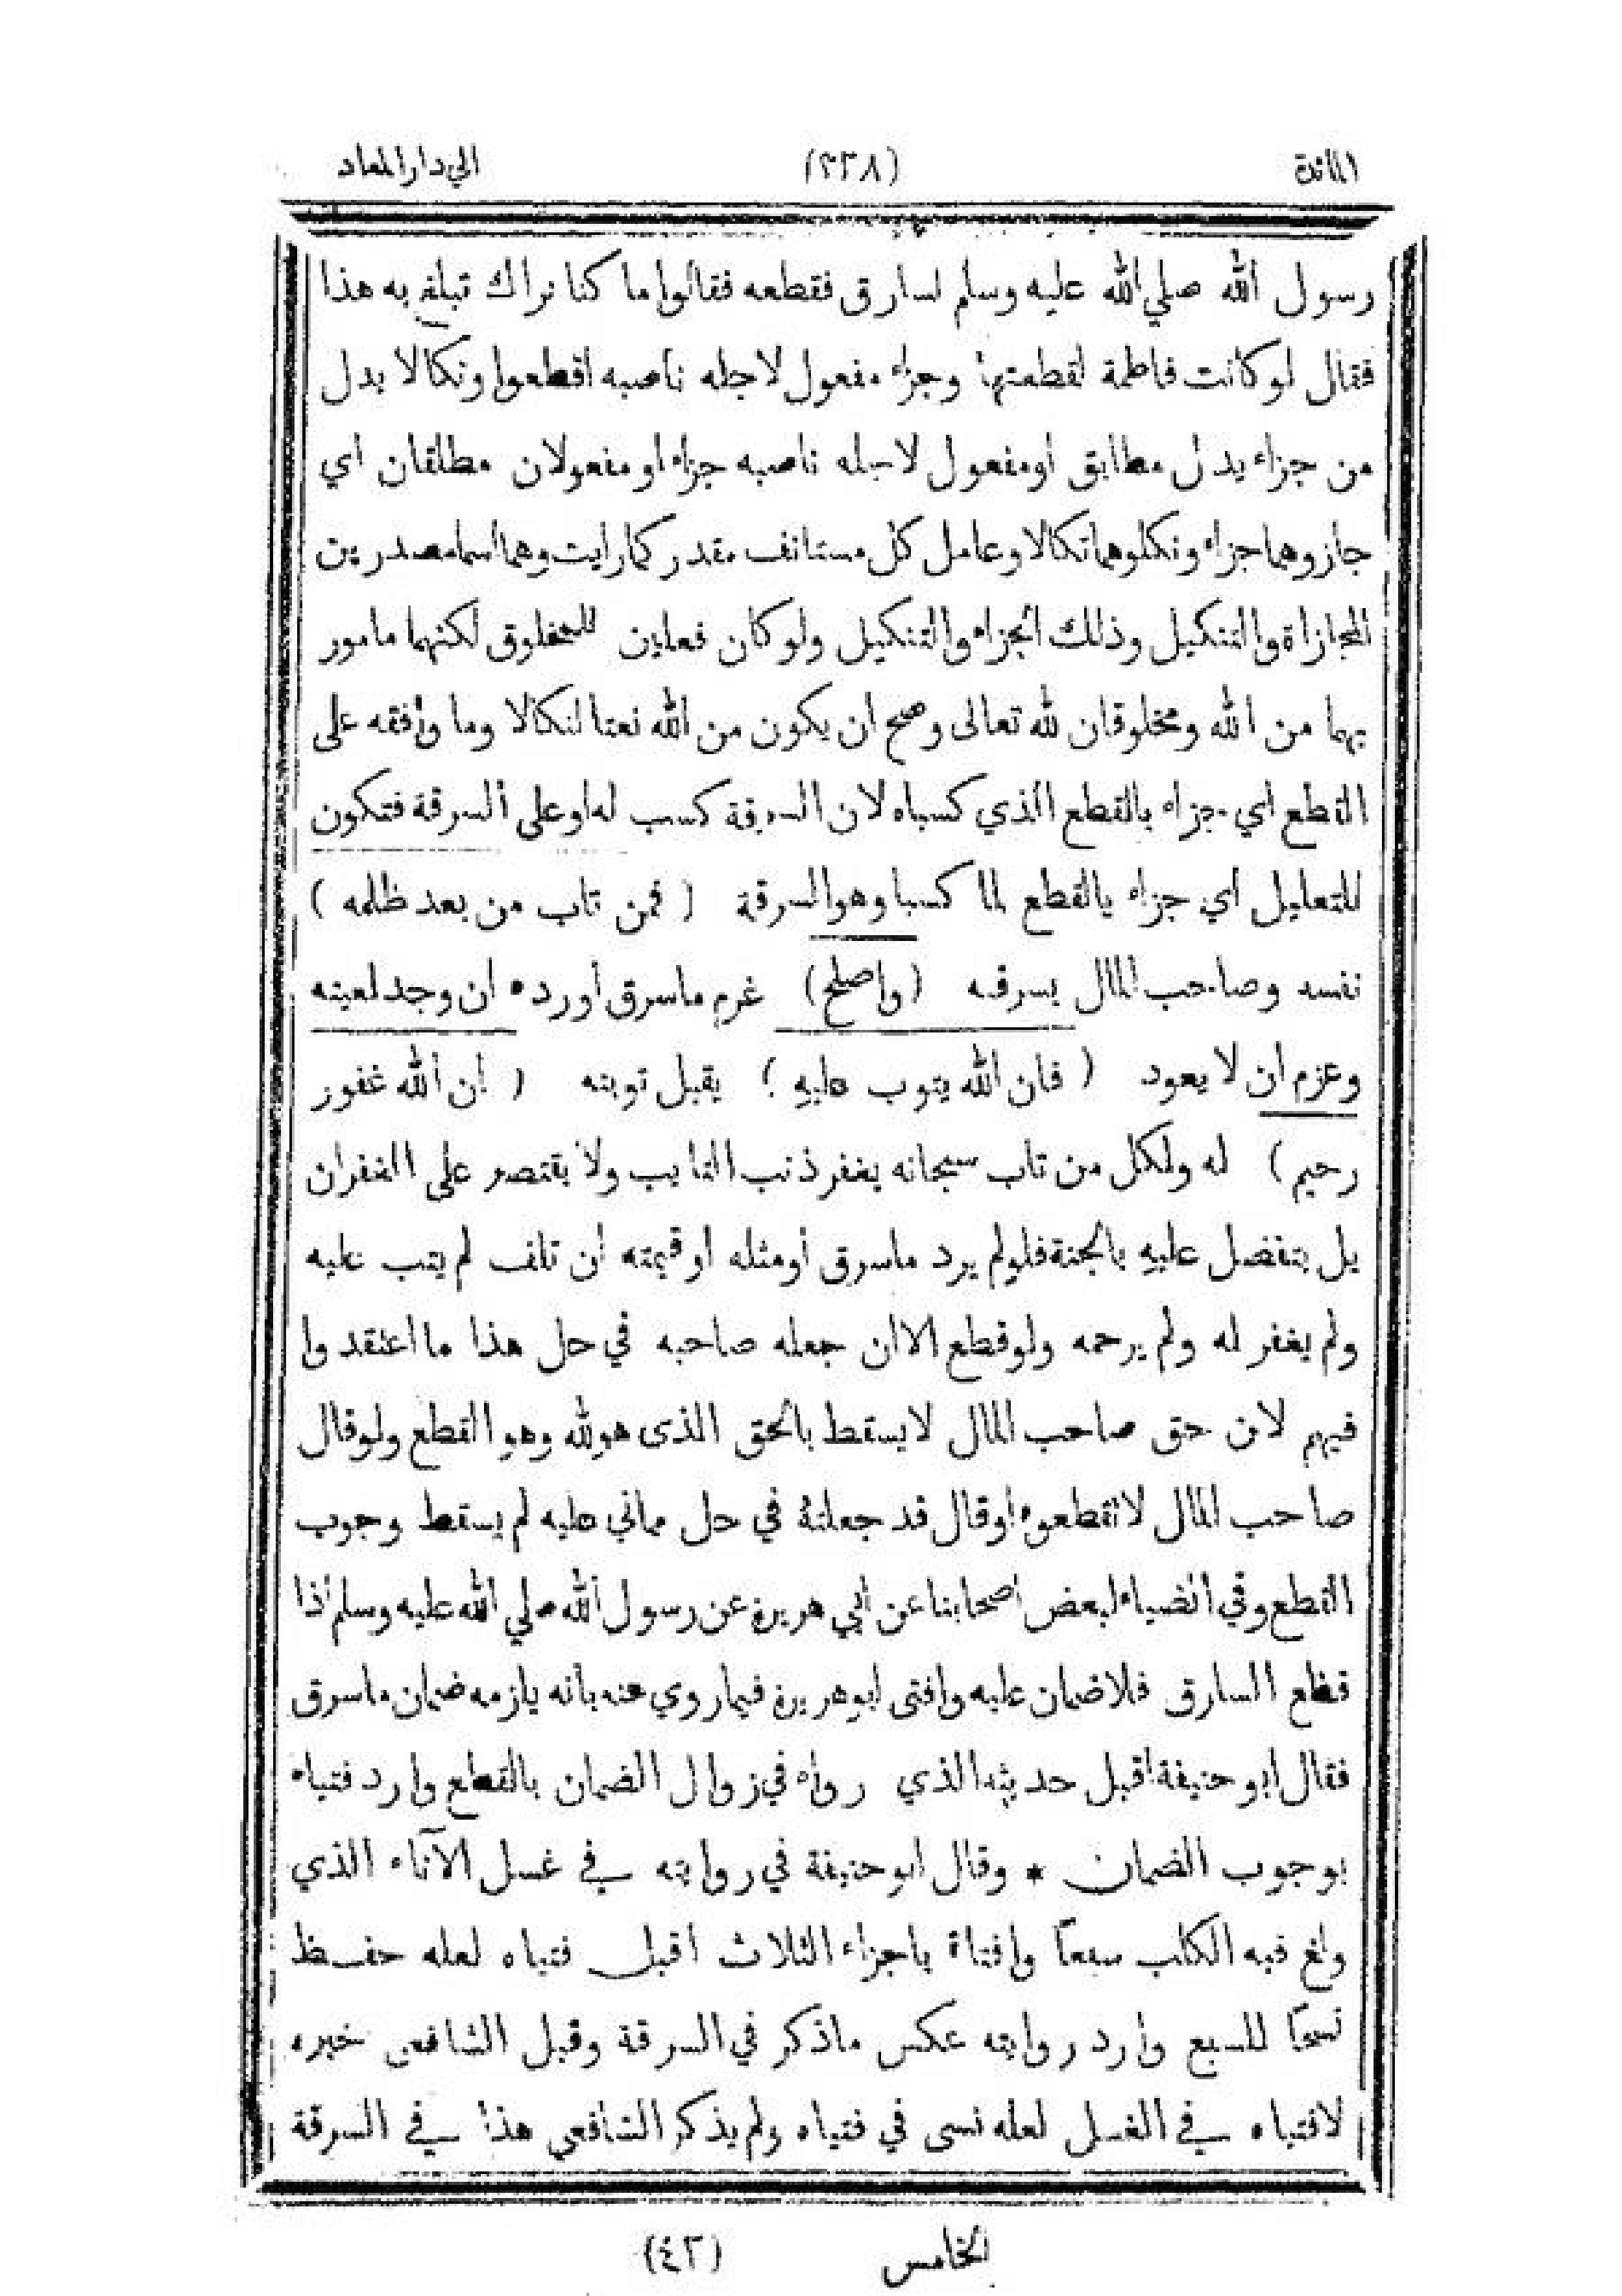 المائدة (٣٣٨) الي دار المعاد
رسول الله صلي الله عليه وسلم لسارق فقطعه فقالوا ما كنا نراك تبلغ به هذا
فقال لو كانت فاطمة لقطعتها وجزاء مفعول لاجله ناصبه اقطعوا ونكالا بدل
من جزاء بدل مطابق او مفعول لاجله ناصبه جزاء او مفعولان مطلقان اي
جازوهما جزاء ونكلوهما نكالا وعامل كل مستانف مقدر كما رايت وهما اسما مصدرين
المجازاة والتنكيل وذلك الجزاء والتنكيل ولو كان فعلين للمخلوق لكنهما مامور
بهما من الله ومخلوقان لله تعالى وصح ان يكون من الله نعتا لنكالا وما وافقه على
القطع اي جزاء بالقطع الذي كسباه لان السرقة كسب له او على السرقة فتكون
للتعليل اي جزاء بالقطع لما كسبا وهو السرقة ( فمن تاب من بعد ظلمه )
نفسه وصاحب المال بسرقه (واصلح) غرم ما سرق أو رده ان وجد لعينه
وعزم ان لا يعود ( فان الله يتوب عليه ) يقبل توبته ( ان الله غفور
رحيم) له ولكل من تاب سبحانه يغفر ذنب التايب ولا يقتصر على الغفران
بل يتفضل عليه بالجنة فلو لم يرد ما سرق أو مثله او قيمته ان تلف لم يتب عليه
ولم يغفر له ولم يرحمه ولو قطع الا ان جعله صاحبه في حل هذا ما اعتقد وا
فيهم لان حق صاحب المال لا يسقط بالحق الذى هو لله وهو القطع ولو قال
صاحب المال لا تقطعوه او قال قد جعلته في حل مماني عليه لم يسقط وجوب
القطع وفي الضياء لبعض اصحابنا عن ابي هريرة عن رسول الله صلي الله عليه وسلم اذا
قطع السارق فلا ضمان عليه وافتى ابو هريرة فيما روي عنه بانه يلزمه ضمان ما سرق
فقال ابو حنيفة اقبل حديثه الذي رواه في زوال الضمان بالقطع وارد فتياه
بوجوب الضمان * وقال ابو حنيفة في روايته في غسل الآناء الذي
ولغ فيه الكلب سبعاً وافتاة باجزاء الثلاث اقبل فتياه لعله حفظ
نسخًا للسبع وارد روايته عكس ما ذكر في السرقة وقبل الشافعى خبره
لا فتياه في الغسل لعله نسى في فتياه ولم يذكر الشافعي هذا في السرقة
الخامس (٤٣)